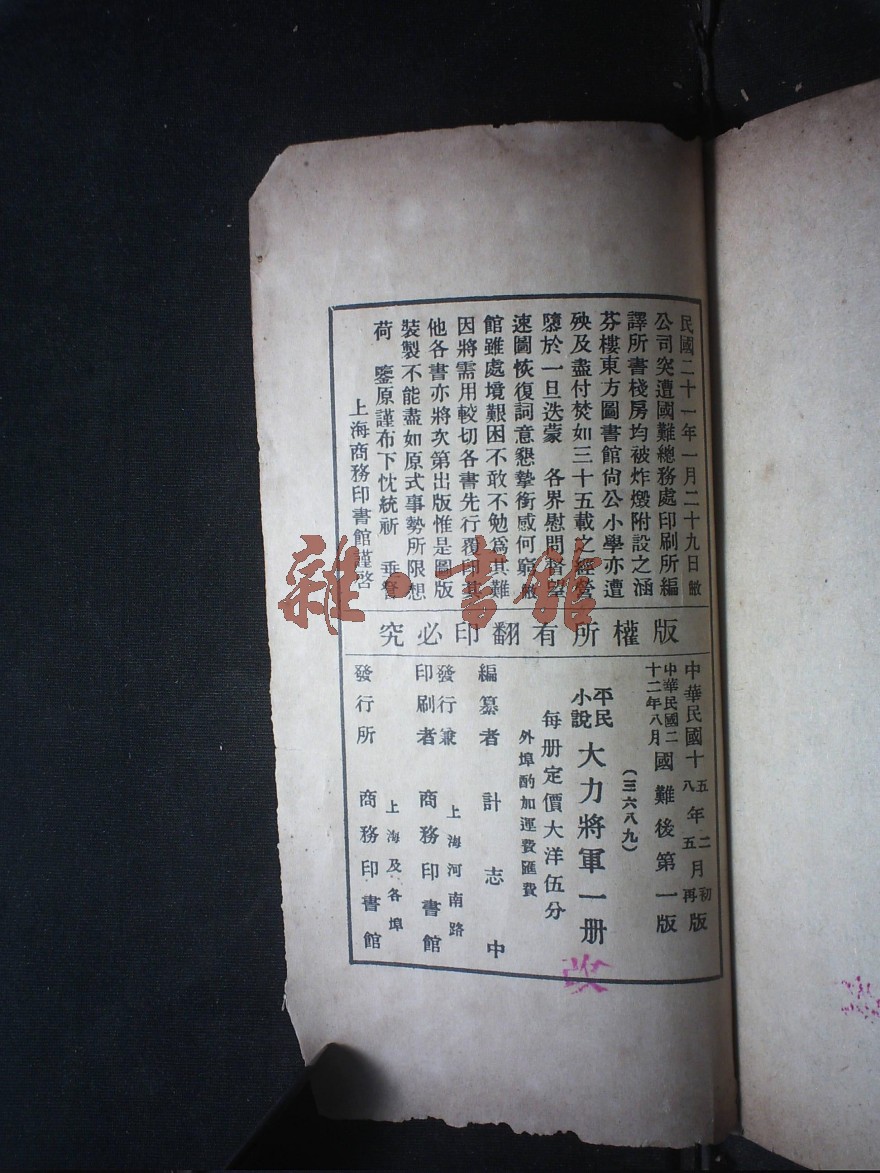 民國二十一年一月二十九日敝
公司突遭國難總務處印刷所編
譯所書棧房均被炸燬附設之涵
芬樓東方圖書館尚公小學亦遭
殃及盡付焚如三十五載之經營
隳於一旦迭蒙　各界慰問督望
速圖恢復詞意懇摯銜感何窮敝
館雖處境艱困不敢不勉爲其難
因將需用較切各書先行覆印其
他各書亦將次第出版惟是圖版
裝製不能盡如原式事勢所限想
荷　鑒原謹布下忱統祈　垂詧
上海商務印書館謹啓
版權所有翻印必究
中華民國十五年二月初版
中華民國十八年五月再版
中華民國二十二年八月國難後第一版
(三六八九)
平民小說 大力將軍一册
每册定價大洋伍分
外埠酌加運費匯費
編纂者 計志中
發行兼印刷者 上海河南路 商務印書館
發行所 上海及各埠 商務印書館
改
雜·書館